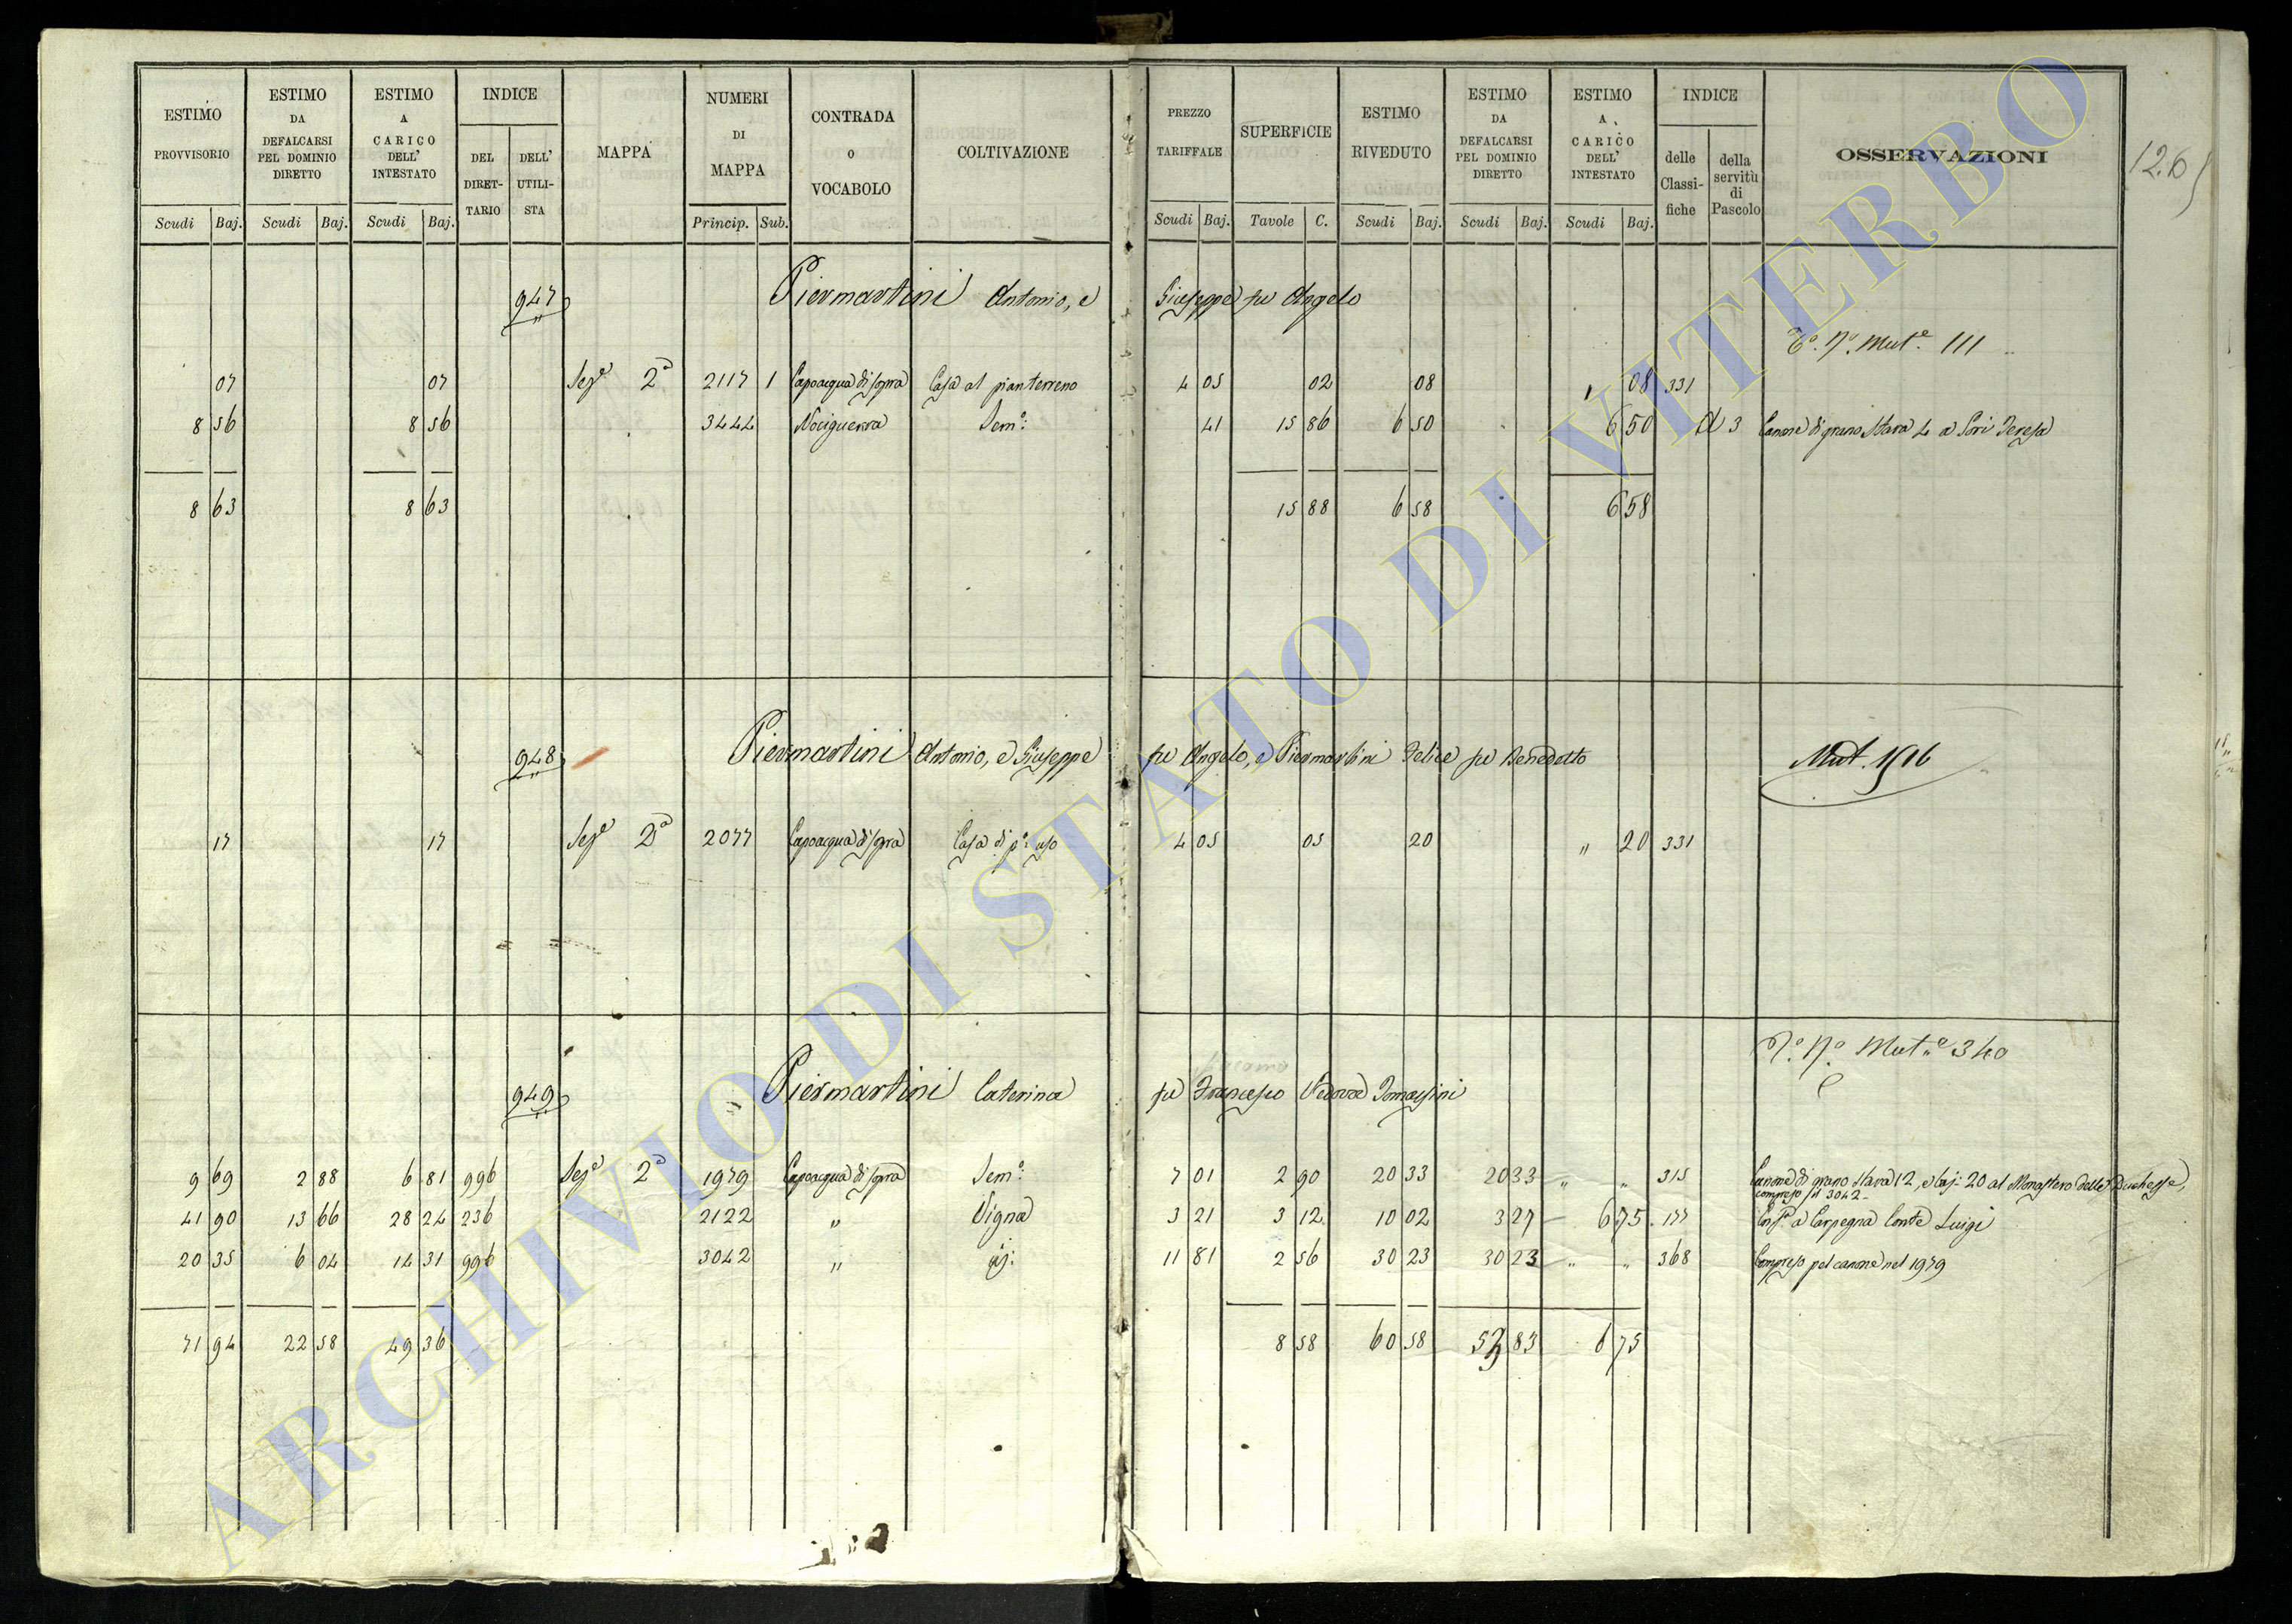 ESTIMO PROVVISORIO Scudi Baj.
ESTIMO DA DEFALCARSI PEL DOMINIO DIRETTO Scudi Baj.
ESTIMO A CARICO DELL' INTESTATO Scudi Baj.
INDICE DEL DIRET-TARIO DELL' UTILI-STA
MAPPA
NUMERI DI MAPPA Princip. Sub.
CONTRADA O VOCABOLO
COLTIVAZIONE
PREZZO TARIFFALE Scudi Baj.
SUPERFICIE Tavole C.
ESTIMO RIVEDUTO Scudi Baj.
ESTIMO DA DEFALCARSI PEL DOMINIO DIRETTO Scudi Baj.
ESTIMO A CARICO DELL' INTESTATO Scudi Baj.
INDICE delle Classi-fiche della servitù di Pascolo
OSSERVAZIONI
126
947 Piermartini Antonio, e Giuseppe fu Angelo
Mut.e 111
07 07 Sez.e 2a 2117 1 Capoacqua di sopra Casa al pianterreno 4 05 02 08 " 08 331
8 56 8 56 3444 Nociguerra Sem.o 41 15 86 6 50 6 50 A 3 Canone di grano Stara 4 a Sori Teresa
8 63 8 63 15 88 6 58 6 58
948 Piermartini Antonio, e Giuseppe fu Angelo, e Piermartini Felice fu Benedetto
Mut.
17 17 Sez.e 2a 2077 Capoacqua di sopra Casa di p.o uso 4 05 05 20 " 20 331
Mut.e 340
949 Piermartini Caterina fu Francesco Vedova Tomassini
9 69 2 88 6 81 996 Sez.e 2a 1979 Capoacqua di sopra Sem.o 7 01 2 90 20 33 20 33 " " 315 Canone di grano Stara 12, e baj. 20 al Monastero delle Duchesse,
compreso il 3042
41 90 13 66 28 24 236 2122 " Vigna 3 21 3 12 10 02 3 27 6 75 177 a Carpegna Conte Luigi
20 35 6 04 14 31 996 3042 " 11 81 2 56 30 23 30 23 " " 368 Compreso pel canone nel 1979
71 94 22 58 49 36 8 58 60 58 53 83 6 75
ARCHIVIO DI STATO DI VITERBO